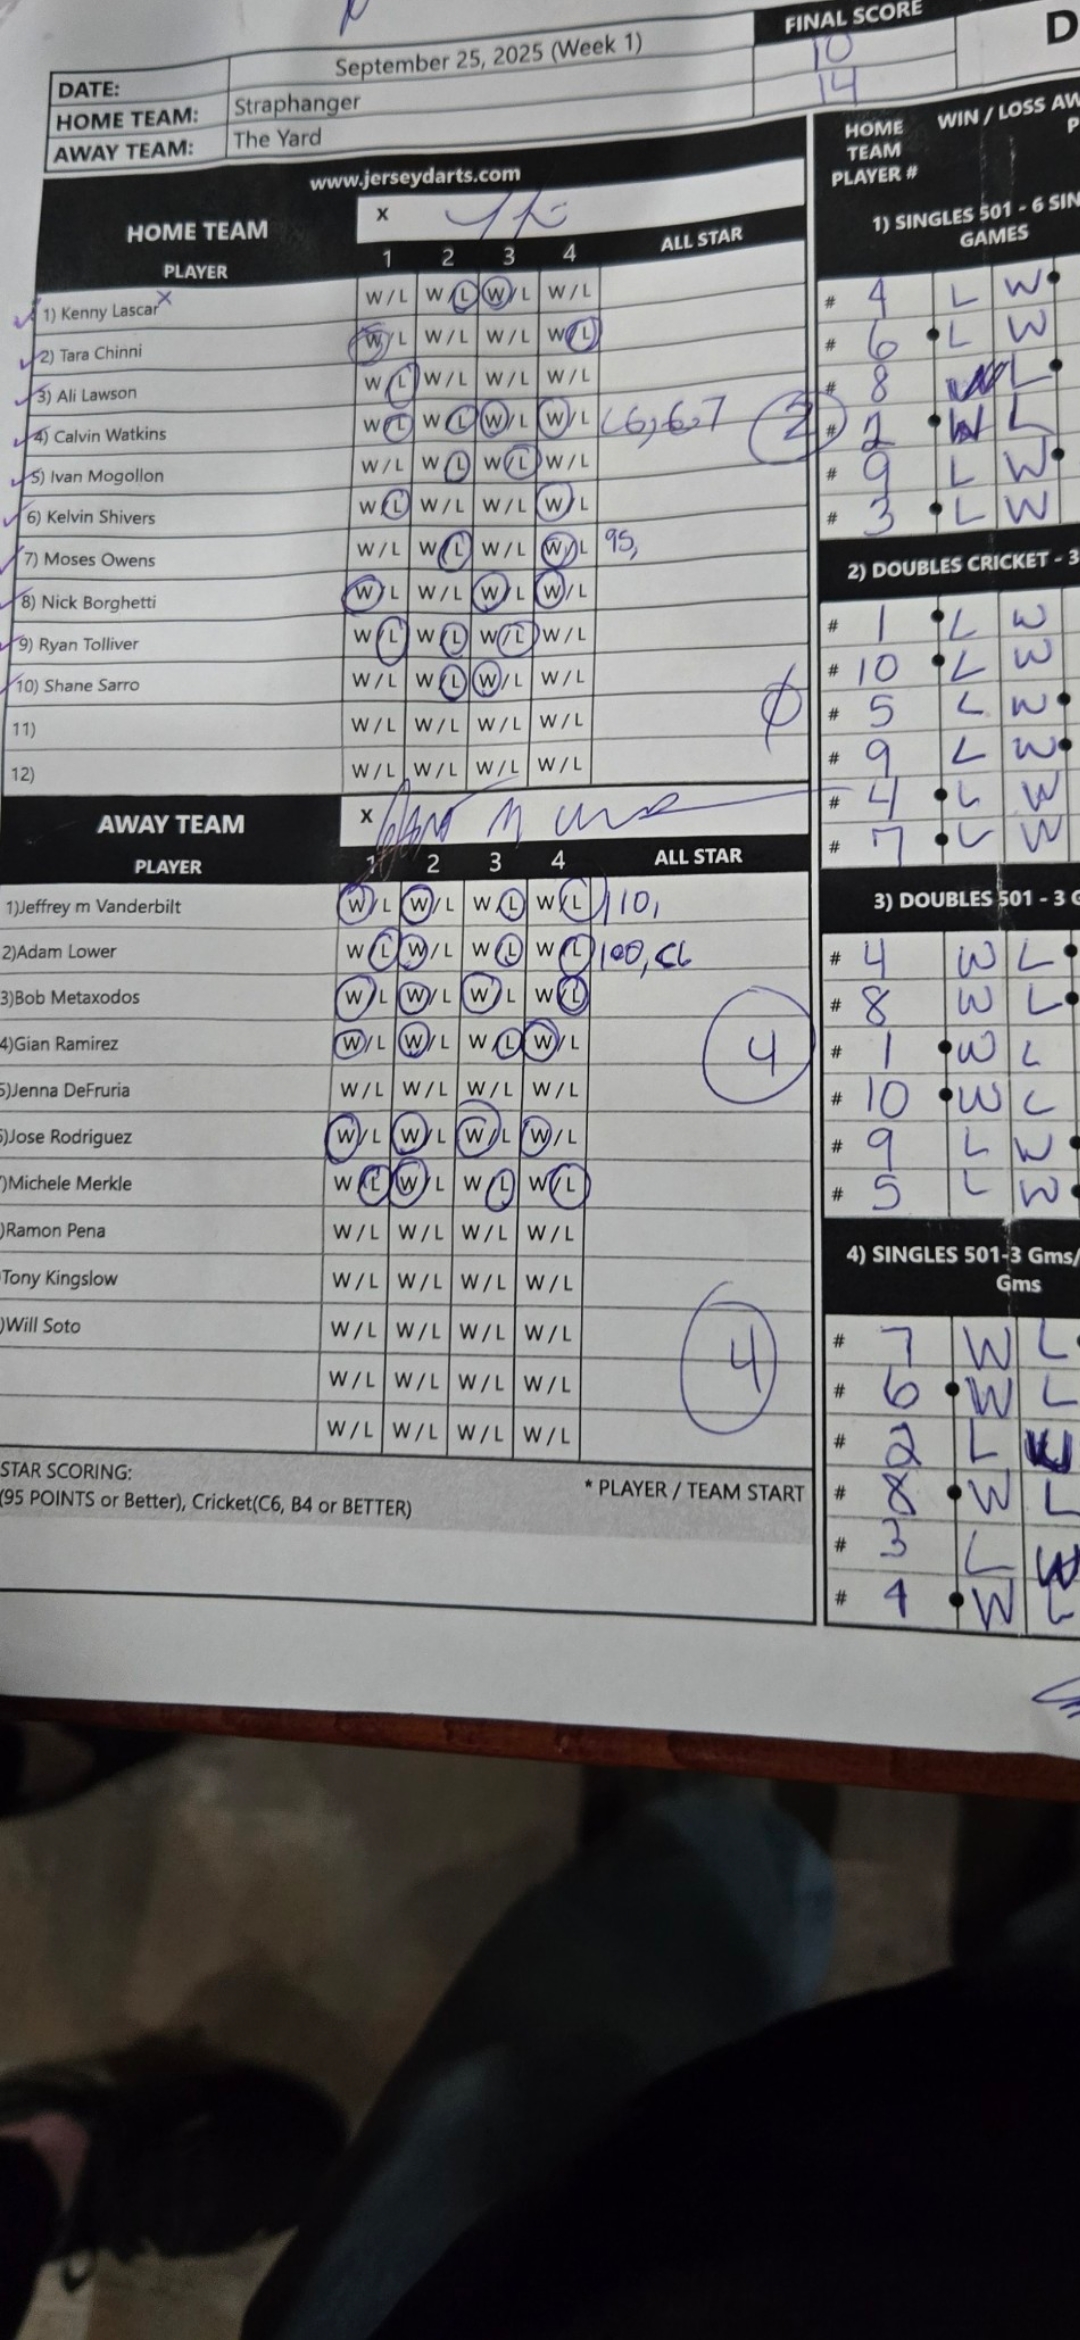 FINAL SCORE
D
DATE: September 25, 2025 (Week 1) 10
HOME TEAM: Straphanger 14
AWAY TEAM: The Yard
www.jerseydarts.com
HOME TEAM x
PLAYER 1 2 3 4 ALL STAR
1) Kenny Lascar x W/L W/L W/L W/L
2) Tara Chinni W/L W/L W/L W/L
3) Ali Lawson W/L W/L W/L W/L
4) Calvin Watkins W/L W/L W/L W/L C6,6,7
5) Ivan Mogollon W/L W/L W/L W/L
6) Kelvin Shivers W/L W/L W/L W/L
7) Moses Owens W/L W/L W/L W/L 95,
8) Nick Borghetti W/L W/L W/L W/L
9) Ryan Tolliver W/L W/L W/L W/L
10) Shane Sarro W/L W/L W/L W/L
11) W/L W/L W/L W/L
12) W/L W/L W/L W/L
AWAY TEAM x
PLAYER 1 2 3 4 ALL STAR
1)Jeffrey m Vanderbilt W/L W/L W/L W/L 110,
2)Adam Lower W/L W/L W/L W/L 100, C6
3)Bob Metaxodos W/L W/L W/L W/L
4)Gian Ramirez W/L W/L W/L W/L 4
5)Jenna DeFruria W/L W/L W/L W/L
)Jose Rodriguez W/L W/L W/L W/L
)Michele Merkle W/L W/L W/L W/L
)Ramon Pena W/L W/L W/L W/L
Tony Kingslow W/L W/L W/L W/L
)Will Soto W/L W/L W/L W/L 4
W/L W/L W/L W/L
W/L W/L W/L W/L
STAR SCORING:
(95 POINTS or Better), Cricket(C6, B4 or BETTER)
* PLAYER / TEAM START
HOME TEAM PLAYER #
WIN / LOSS AW
P
1) SINGLES 501 - 6 SIN
GAMES
# 4 L W
# 6 L W
# 8 W L
# 2 W L
# 9 L W
# 3 L W
2) DOUBLES CRICKET - 3
# 1 L W
# 10 L W
# 5 L W
# 9 L W
# 4 L W
# 7 L W
3) DOUBLES 501 - 3 G
# 4 W L
# 8 W L
# 1 W L
# 10 W L
# 9 L W
# 5 L W
4) SINGLES 501-3 Gms/
Gms
# 7 W L
# 6 W L
# 2 L W
# 8 W L
# 3 L W
# 4 W L